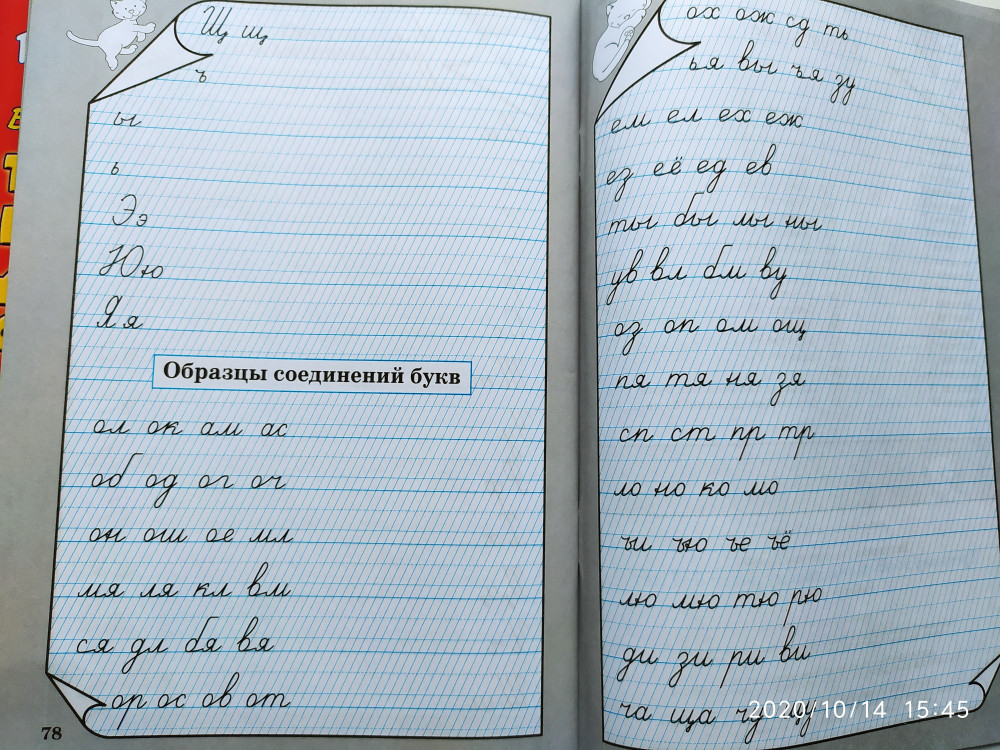 Щ щ
ъ
ы
ь
Э э
Ю ю
Я я
Образцы соединений букв
ол ок ам ас
об од ог оч
он ош ое мл
мя ля кл вм
ся дл бя вя
ор ос ов от
78
ох ож сд ть
ья вы ъя зу
ем ел ех еж
ез её ед ев
ты бы лы ны
ув вл бм ву
оз оп ом ощ
пя тя ня зя
сп ст пр тр
ло но ко мо
ьи ью ье ьё
лю мю тю рю
ди зи ри ви
ча ща чу
2020/10/14 15:45